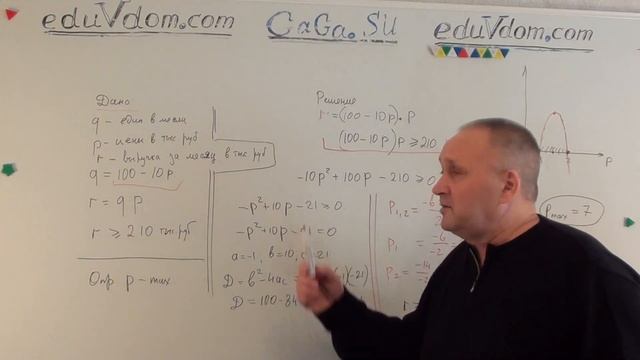 eduVdom.com
CaGa.Su
eduVdom.com
Дано
q - един в месяц
p - цены в тыс руб
r - выручка за месяц в тыс. руб
q = 100 - 10p
r = q p
r ≥ 210 тыс руб
Опр p - max
Решение
r = (100 - 10p) · p
(100 - 10p) p ≥ 210
-10p² + 100p - 210 ≥ 0
-p² + 10p - 21 ≥ 0
-p² + 10p - 21 = 0
a = -1, b = 10, c = -21
D = b² - 4ac =
(-21)
D = 100 - 84
P₁,₂ =
P₁ = -6/-2 =
P₂ = -14/-2
r =
P
Pmax = 7